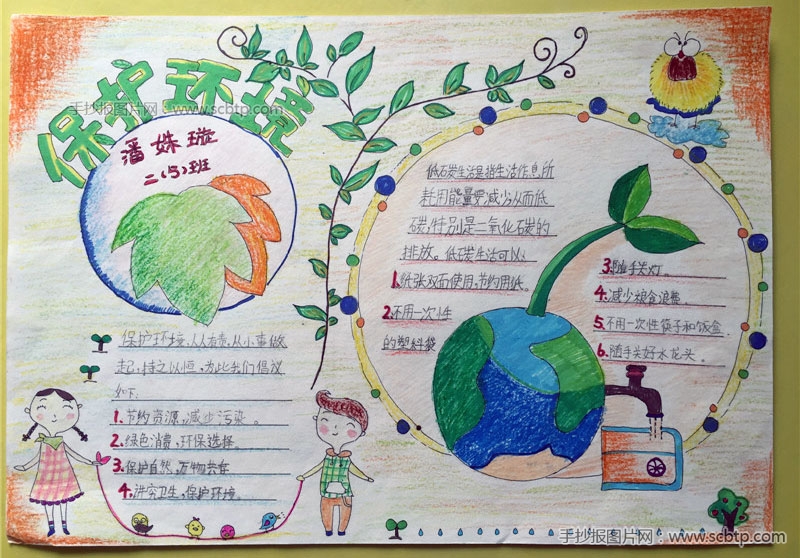 保护环境
手抄报图片网:www.scbtp.com
潘姝璇
二(5)班
保护环境,人人有责,从小事做
起,持之以恒,为此我们倡议
如下:
1.节约资源,减少污染。
2.绿色消费,环保选择。
3.保护自然,万物共存
4.讲究卫生,保护环境。
低碳生活是指生活作息所
耗用能量要减少,从而低
碳,特别是二氧化碳的
排放。低碳生活可以:
1.纸张双面使用,节约用纸。
2.不用一次性
的塑料袋
3.随手关灯。
4.减少粮食浪费。
5.不用一次性筷子和饭盒
6.随手关好水龙头。
手抄报图片网:www.scbtp.com